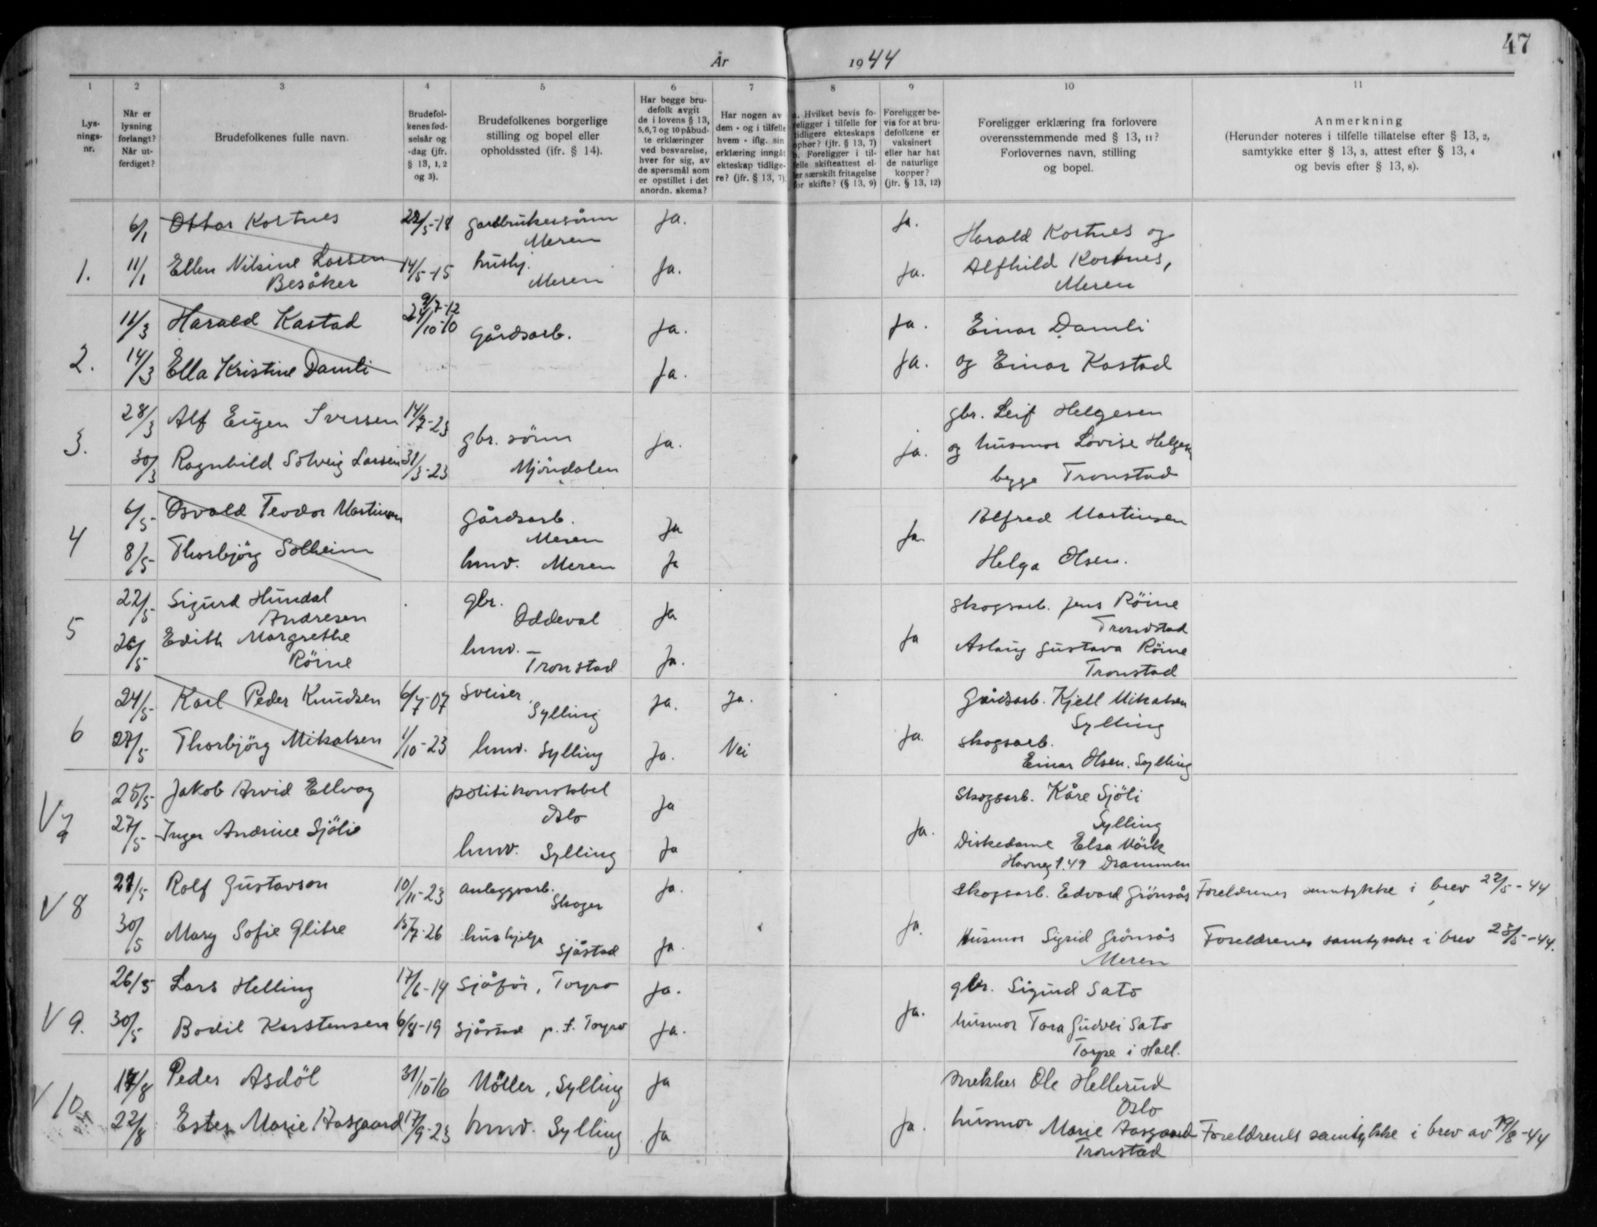 47
År 1944
1 2 3 4 5 6 7 8 9 10 11
Lys-
nings-
nr.
Når er
lysning
forlangt?
Når ut-
ferdiget?
Brudefolkenes fulle navn.
Brudefol-
kenes fød-
selsår og
-dag (jfr.
§ 13, 1, 2
og 3).
Brudefolkenes borgerlige
stilling og bopel eller
opholdssted (ifr. § 14).
Har begge bru-
defolk avgit
de i lovens § 13,
5,6,7 og 10 påbud-
te erklæringer
ved besvarelse,
hver for sig, av
de spørsmål som
er opstillet i det
anordn. skema?
Har nogen av
dem - og i tilfelle
hvem - iflg. sin
erklæring inngåt
ekteskap tidlige-
re? (jfr. § 13, 7)
a. Hvilket bevis fo-
religger i tilfelle for
tidligere ekteskaps
ophør? (jfr. § 13, 7)
b. Foreligger i til-
felle skifteattest el-
ler særskilt fritagelse
for skifte? (§ 13, 9)
Foreligger be-
vis for at bru-
defolkene er
vaksinert
eller har hat
de naturlige
kopper?
(jfr. § 13, 12)
Foreligger erklæring fra forlovere
overensstemmende med § 13, 11?
Forlovernes navn, stilling
og bopel.
Anmerkning
(Herunder noteres i tilfelle tillatelse efter § 13, 2,
samtykke efter § 13, 3, attest efter § 13, 4
og bevis efter § 13, 8).
6/1 Ottar Kortnes 22/5-18 gardbrukersönn ja. ja.
Meren
Harald Kortnes og
1. 11/1 Ellen Nilsine Larsen 14/5-15 hushj. Ja. Ja. Alfhild Kortnes,
Besåker Meren Meren
9/7-12
11/3 Harald Kastad 24/10-10 gårdsarb. Ja. Ja. Einar Damli
2. 14/3 Ella Kristine Damli Ja. Ja. og Einar Kastad
28/3 Alf Eugen Iversen 14/7-23 gbr. Leif Helgesen
3. gbr. sönn Ja. ja. og husmor Lovise Helgesen
30/3 Ragnhild Solveig Larsen 31/3-23 Mjöndalen
begge Tronstad
6/5 Osvald Teodor Martinsen gårdsarb. Ja Alfred Martinsen
Meren
4 Ja
8/5 Thorbjörg Solheim huv. Meren Ja Helga Olsen.
22/5 Sigurd Hundal gbr. Ja skogsarb. Jens Röine
Andresen Oddeval Trondstad
5 26/5 Edith Margrethe huv. Ja Aslaug Gustava Röine
Röine Tronstad Ja. Tronstad
24/5 Karl Peder Knudsen 6/7-07 Sveiser, Ja. Ja. Gårdsarb. Kjell Mikalsen
Sylling Sylling
6 27/5 Thorbjörg Mikalsen 1/10-23 huv. Sylling Ja. Nei Ja. skogsarb.
Einar Olsen. Sylling
25/5 Jakob Arvid Ellvag politikonstabel Ja Skogsarb. Kåre Sjöli
Oslo Sylling
V 7 27/5 Inger Andrine Sjölie Ja. Diskedame Elsa Mörk
huv. Sylling Ja Havneg 149 Drammen
27/5 Rolf Gustavson 10/11-23 anleggsarb. Ja. skogsarb. Edvard Grönsås Foreldrenes samtykke i brev 22/5-44
Skoger
V 8 Ja.
30/5 Mary Sofie Glitre 15/7-26 hushjelp Ja. Husmor Sigrid Grönsås Foreldrenes samtykke i brev 23/5-44.
Sjåstad Meren
26/5 Lars Helling 17/6-14 Sjåför, Torpo Ja. gbr. Sigurd Sato
V 9. 30/5 Bodil Karstensen 6/8-19 Sjåstad p.t. Torpo Ja. Ja. husmor Tora Gudvei Sato
Torpe i Hall.
17/8 Peder Asdöl 31/10-16 Möller, Sylling Ja snekker Ole Hellerud
Oslo
V 10 22/8 Ester Marie Aasgaard 17/9-23 huv. Sylling Ja Ja. husmor Marie Aasgaard Foreldrenes samtykke i brev av 19/8-44
Tronstad